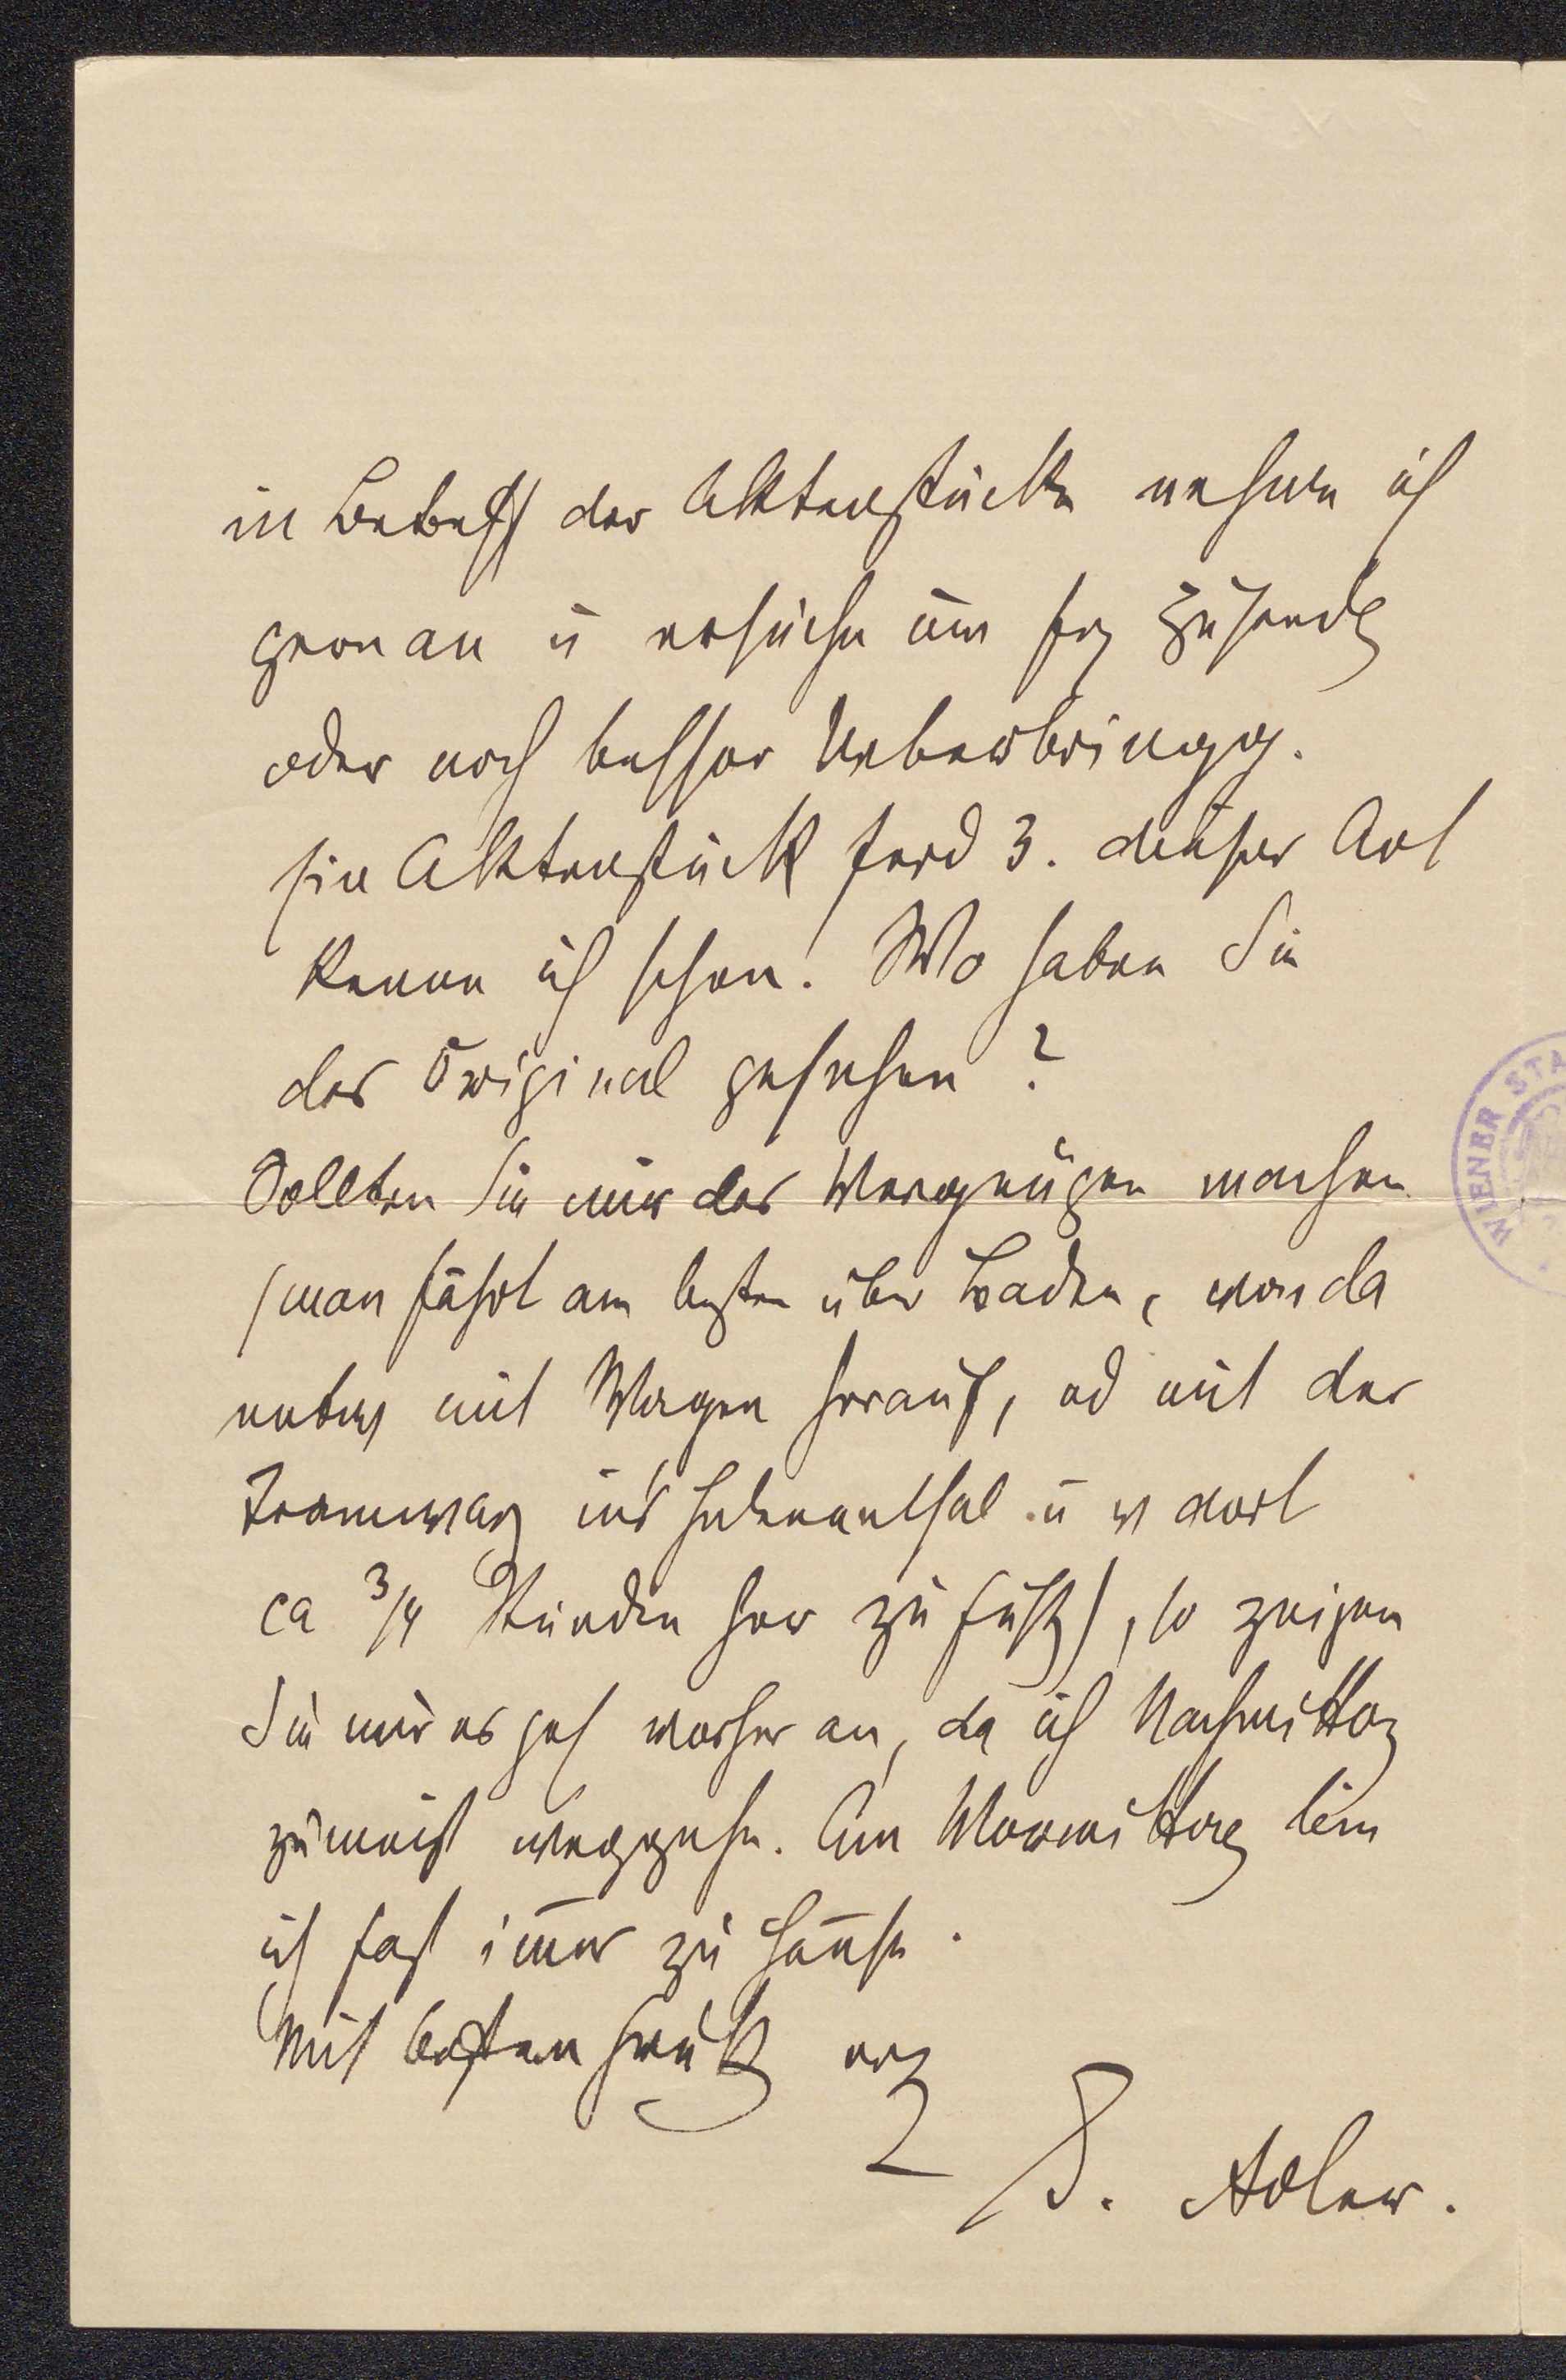 in Betreff der Aktenstücke nehme ich
gern an u ersuche um frz Zusendg
oder noch besser Ueberbringg.
Ein Aktenstück Ferd 3. dieser Art
kenne ich schon. Wo haben Sie
das Original gesehen?
Sollten Sie mir das Vergnügen machen
(man fährt am besten über Baden, von da
entw mit Wagen herauf, od mit der
Tramway in's Helenenthal u v dort
ca 3/4 Stunden her zu Fuß), so zeigen
Sie mir es gef vorher an, da ich Nachmittag
zumeist weggehe. Am Vormittag bin
ich fast im̄er zu Hause.
Mit besten Gruß erg
G. Adler.
WIENER STA